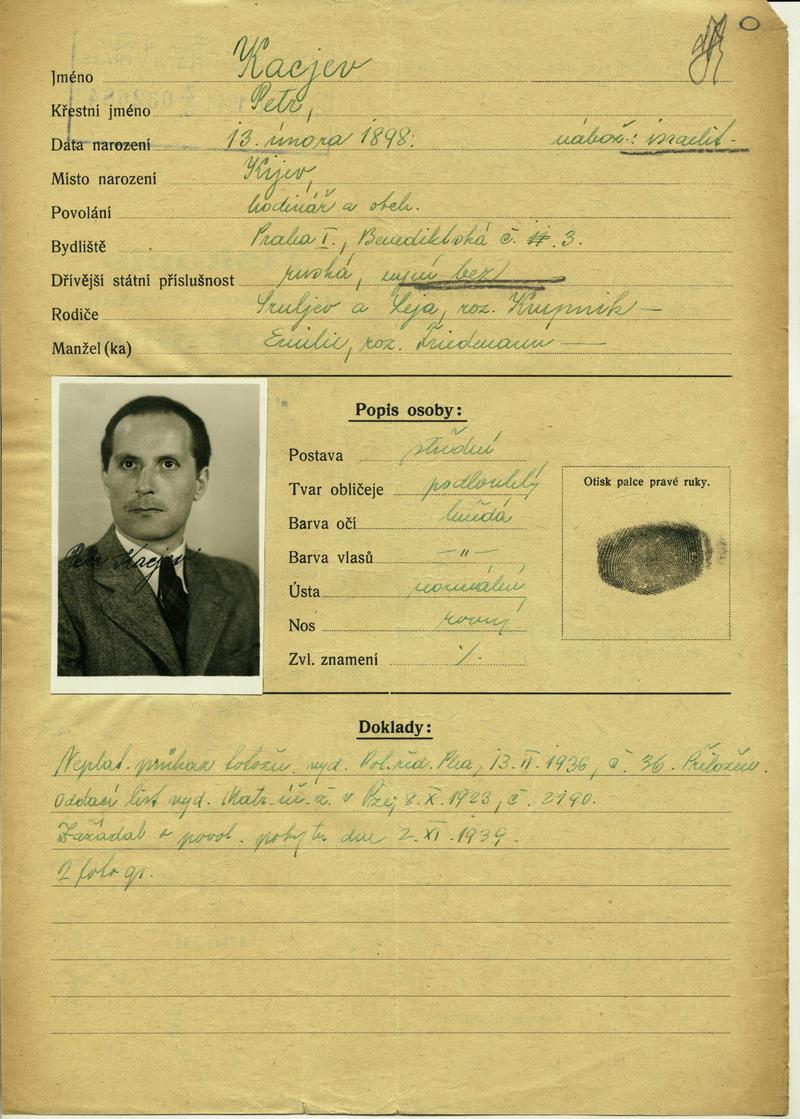 Jméno Kacjev
Křestní jméno Petr,
Data narození 13. února 1898. nábož.: israelit.
Místo narození Kijev,
Povolání hodinář a obch.
Bydliště Praha I., Benediktská č. 3.
Dřívější státní příslušnost ruská, nyní bez
Rodiče Sruljev a Leja, roz. Krupnik —
Manžel (ka) Emilie, roz. Friedmann —
Popis osoby:
Postava střední
Tvar obličeje podlouhlý
Otisk palce pravé ruky.
Barva očí hnědá
Barva vlasů —"—
Petr Kacjev
Ústa normální
Nos rovný
Zvl. znamení ./.
Doklady:
Neplat. průkaz totožn. vyd. Pol. řed. Pha, 13. II. 1936, č. 36. Přiložen.
Oddací list vyd. Matr. úř. ž. v 8. X. 1923, č. 2190.
Zažádal o povol. pobytu dne 2. XI. 1939.
2 fotogr.